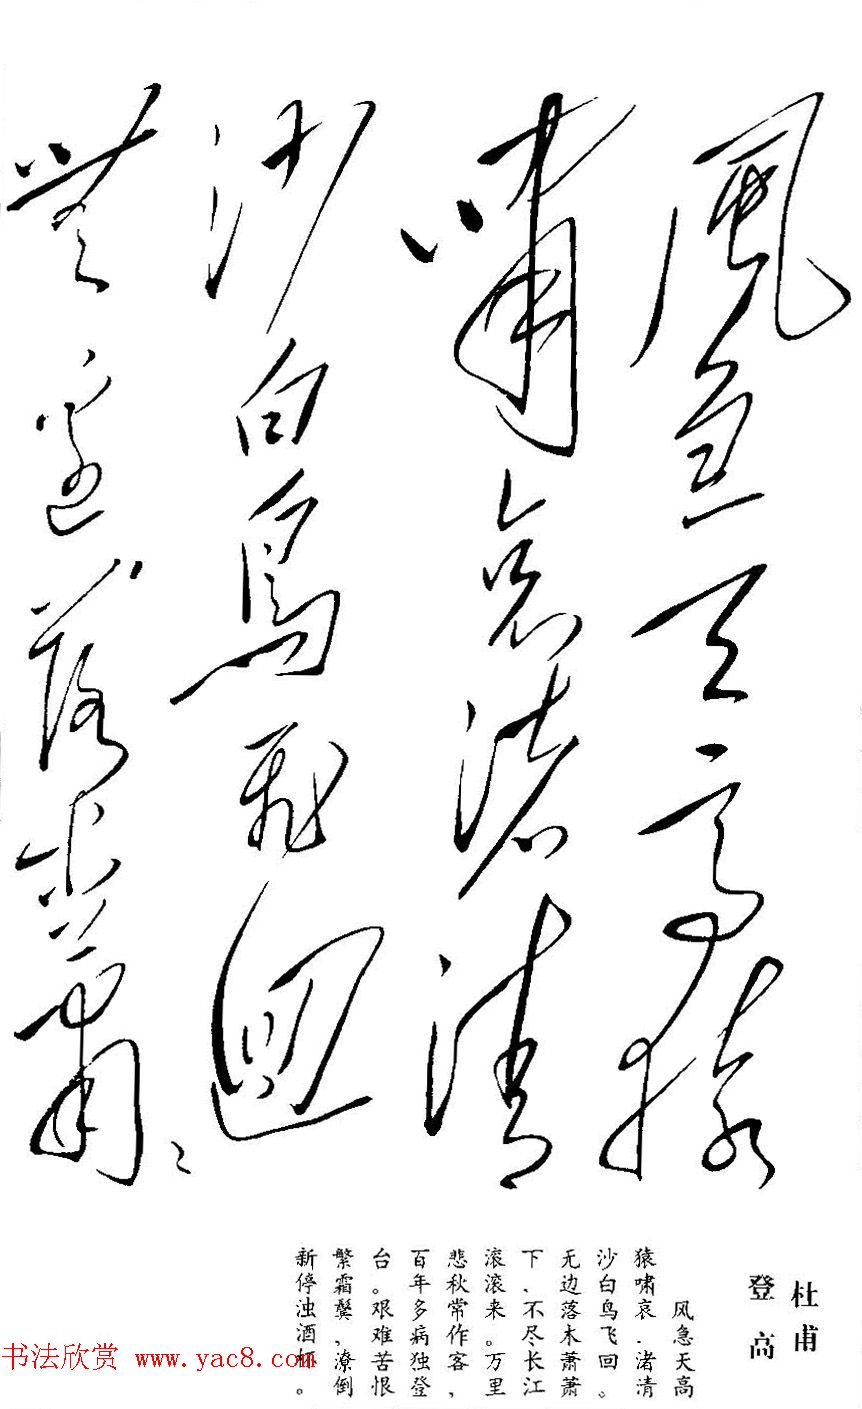 風急天高猿
嘯哀渚清
沙白鳥飛迴
無邊落木蕭〻
杜甫
登高
风急天高
猿啸哀.渚清
沙白鸟飞回。
无边落木萧萧
下、不尽长江
滚滚来。万里
悲秋常作客，
百年多病独登
台。艰难苦恨
繁霜鬓，潦倒
新停浊酒杯。
书法欣赏 www.yac8.com